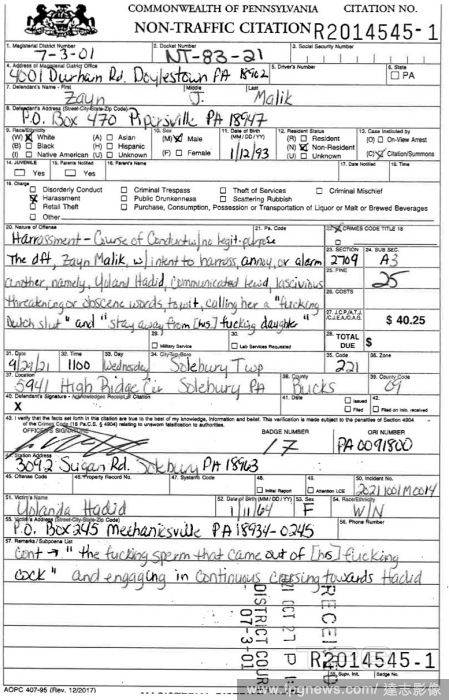 COMMONWEALTH OF PENNSYLVANIA CITATION NO.
NON-TRAFFIC CITATION R2014545-1
1. Magisterial District Number 2. Docket Number 3. Social Security Number
7-3-01 NT-83-21
4. Address of Magisterial District Office 5. Driver's Number 6. State
4001 Durham Rd, Doylestown PA 18902 PA
7. Defendant's Name - First Middle Last
Zayn J. Malik
8. Defendant's Address (Street-City-State-Zip Code)
P.O. Box 470 Pipersville PA 18947
9. Race/Ethnicity 10. Sex 11. Date of Birth (MM/DD/YY) 12. Resident Status 13. Case Instituted by
(W) White (A) Asian (M) Male (R) Resident (O) On-View Arrest
(B) Black (H) Hispanic (F) Female 1/12/93 (N) Non-Resident (C) Citation/Summons
(I) Native American (U) Unknown (U) Unknown
14. JUVENILE 15. Parents Notified 16. Parent's Name 17. Date Notified 18. Time
Yes Yes
19. Charge
Disorderly Conduct Criminal Trespass Theft of Services Criminal Mischief
Harassment Public Drunkenness Scattering Rubbish
Retail Theft Purchase, Consumption, Possession or Transportation of Liquor or Malt or Brewed Beverages
Other
20. Nature of Offense 21. Pa. Code 22. CRIMES CODE TITLE 18
Harrassment - Course of Conduct w/no legit purpose
23. SECTION 24. SUB SEC.
2709 A3
The dft, Zayn Malik, w/ intent to harass, annoy, or alarm
25. FINE 25
another, namely, Yoland Hadid, communicated lewd, lascivious
26. COSTS
threatening or obscene words, to wit, calling her a "fucking
$ 40.25
dutch slut" and "stay away from [his] fucking daughter"
28. TOTAL DUE $
29. Military Service 30. Lab Services Requested
31. Date 32. Time 33. Day 34. City-Twp-Boro 35. Code 36. Zone
9/29/21 1100 Wednesday Solebury Twp 221
37. Location 38. County 39. County Code
5941 High Ridge Cir Solebury PA Bucks 09
40. Defendant's Signature - Acknowledges Receipt of Citation 41. Date Issued 42.
X Filed Filed on info. received
43. I verify that the facts set forth in this citation are true to the best of my knowledge, information and belief. This verification is made subject to the penalties of Section 4904
of the Crimes Code (18 Pa.C.S. § 4904) relating to unsworn falsification to authorities.
OFFICER'S SIGNATURE BADGE NUMBER ORI NUMBER
17 PA0091800
44. Station Address
3092 Sugan Rd. Solebury PA 18963
45. Offense Code 46. Property Record No. 47. Systems Code 48. Initial Report 49. Attention LCE 50. Incident No.
20211001M0014
51. Victim's Name 52. Date of Birth (MM/DD/YY) 53. Sex 54. Race/Ethnicity
Yolanda Hadid 1/11/64 F W/N
55. Victim's Address (Street-City-State-Zip Code) 56. Phone Number
P.O. Box 245 Mechanicsville PA 18934-0245
57. Remarks/Subpoena List
cont → "the fucking sperm that came out of [his] fucking
cock" and engaging in continuous cursing towards Hadid
RECEIVED
21 OCT 27 P
DISTRICT COURT
07-3-01
R2014545-1
58. Supv. Init. Badge No.
AOPC 407-95 (Rev. 12/2017)
www.ipgnews.com / 達志影像